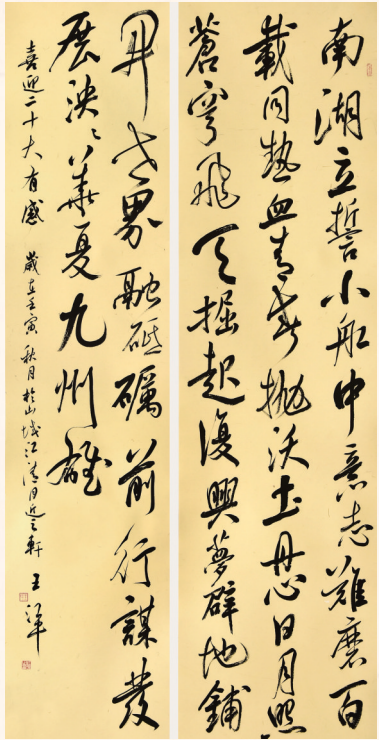 南湖立誓小船中意志難磨百
載同熱血青春拋沃土丹心日月照
蒼穹飛天掘起復興夢辟地鋪
開世界融砥礪前行謀發
展泱々華夏九州雄
喜迎二十大有感 歲在壬寅秋月於山城江清月近之軒 王